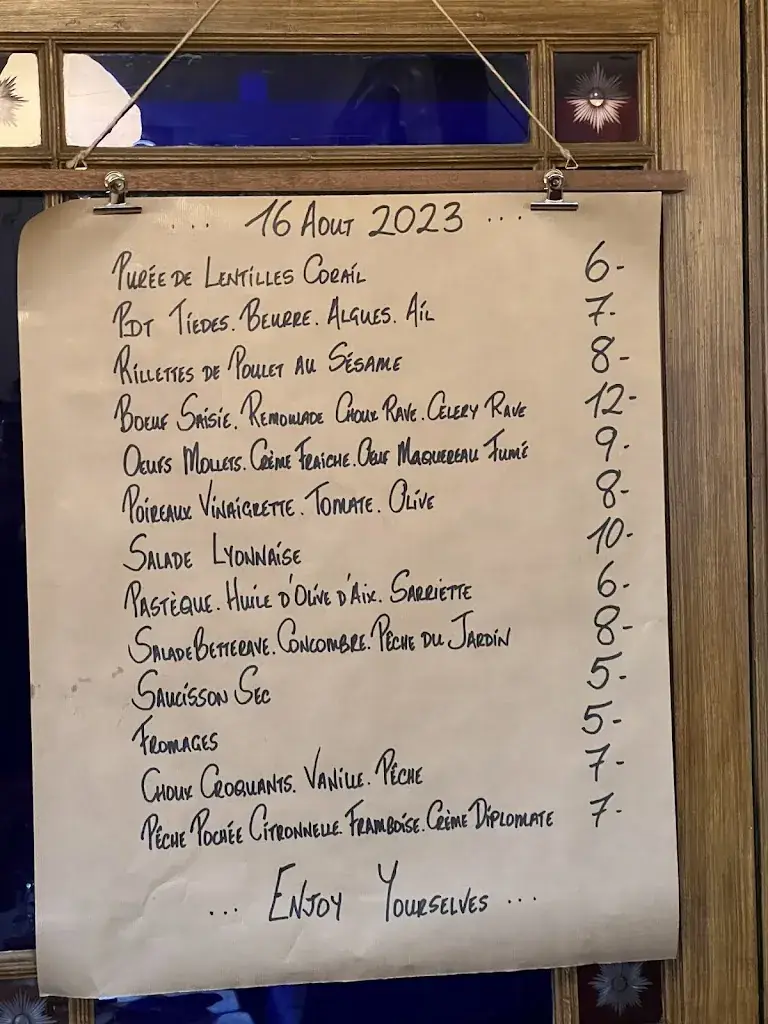 ... 16 Aout 2023 ...
Purée de Lentilles Corail 6-
Pdt Tiedes. Beurre. Algues. Ail 7-
Rillettes de Poulet au Sésame 8-
Boeuf Saisie. Remoulade Choux Rave. Celery Rave 12-
Oeufs Mollets. Crème Fraiche. Oeuf Maquereau Fumé 9-
Poireaux Vinaigrette. Tomate. Olive 8-
Salade Lyonnaise 10-
Pastèque. Huile d'Olive d'Aix. Sarriette 6-
Salade Betterave. Concombre. Pêche du Jardin 8-
Saucisson Sec 5-
Fromages 5-
Choux Croquants. Vanille. Pêche 7-
Pêche Pochée Citronnelle. Framboise. Crème Diplomate 7-
... Enjoy Yourselves ...